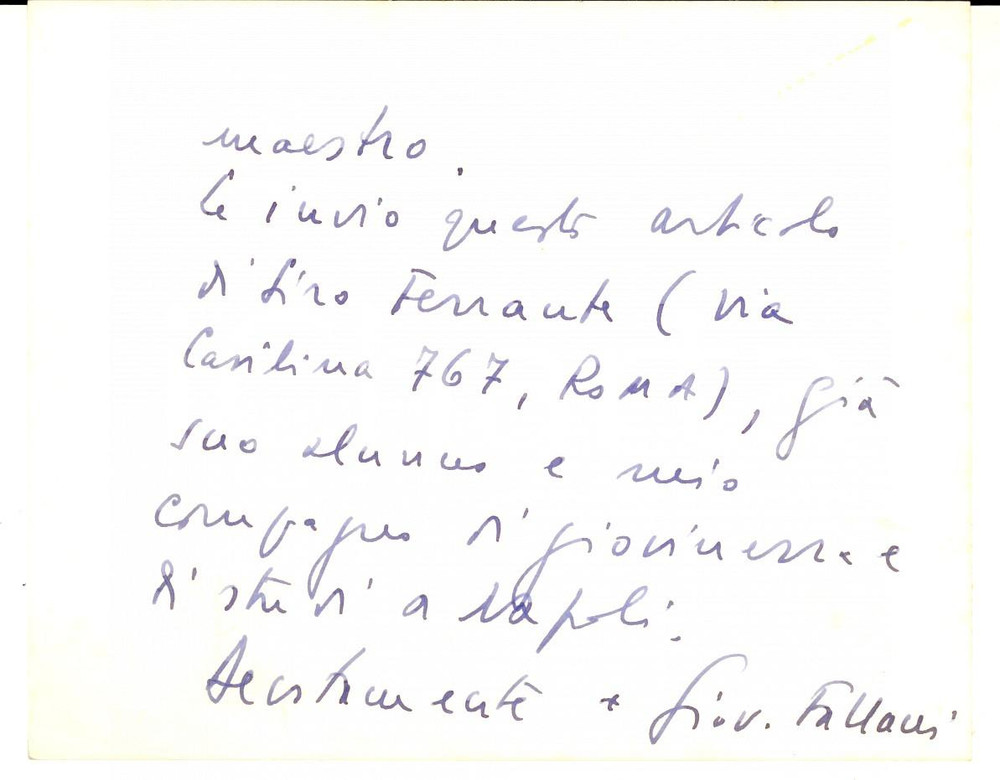 maestro.
Le invio questo articolo
di Siro Ferrante (via
Casilina 767, ROMA), già
suo alunno e mio
compagno di giovinezza e
di studi a Napoli.
+ Giov. Fallani